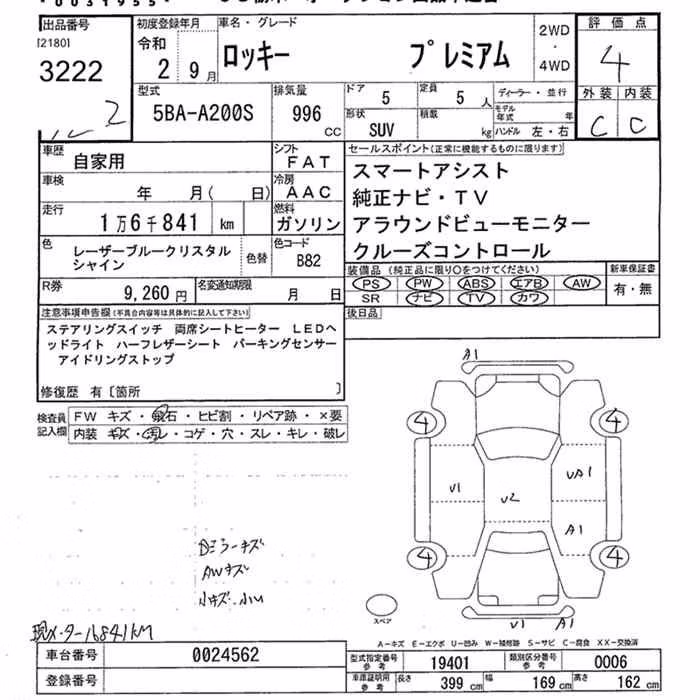 出品番号
[2180]
3222
2
初度登録年月
令和
2 9月
車名・グレード
ロッキー プレミアム
2WD
・
4WD
評価点
4
外装 内装
C C
型式
5BA-A200S
排気量
996
CC
ドア
5
定員
5 人
形状
SUV
積載
kg
ディーラー・並行
モデル年式 年
ハンドル 左・右
車歴
自家用
シフト
FAT
車検
年 月( 日)
冷房
AAC
走行
1万6千841 km
燃料
ガソリン
色
レーザーブルークリスタル
シャイン
色替
色コード
B82
R券
9,260 円
名変通知期限
月 日
セールスポイント(正常に機能するものに限ります)
スマートアシスト
純正ナビ・TV
アラウンドビューモニター
クルーズコントロール
装備品 (純正品に限り○をつけてください)
PS PW ABS エアB AW
SR ナビ TV カワ
新車保証書
有・無
後日品
注意事項申告欄(不具合内容等は具体的に記入して下さい)
ステアリングスイッチ 両席シートヒーター LEDヘ
ッドライト ハーフレザーシート パーキングセンサー
アイドリングストップ
修復歴 有[箇所 ]
検査員
記入欄
FW キズ・飛石・ヒビ割・リペア跡・×要
内装 キズ・汚レ・コゲ・穴・スレ・キレ・破レ
A1
4 4
V1 V2 UA1
A1
4 4
スペア
V1 A1
Dミラーキズ
AWキズ
小キズ.小凹
現メーター16841KM
A-キズ E-エクボ U-凹み W-補修跡 S-サビ C-腐食 XX-交換済
車台番号
0024562
登録番号
型式指定番号
参考
19401
類別区分番号
参考
0006
車庫証明用
参考
長さ 399 cm 幅 169 cm 高さ 162 cm